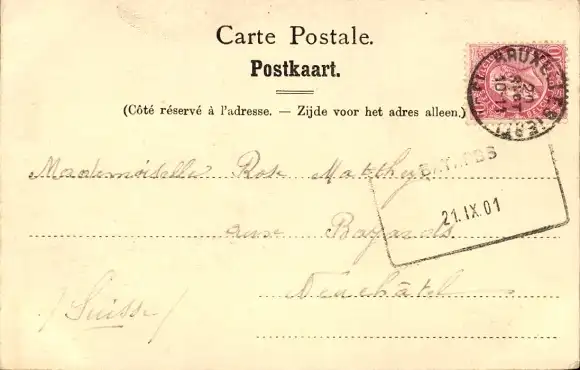 Carte Postale.
Postkaart.
(Côté réservé à l'adresse. — Zijde voor het adres alleen.)
Mademoiselle Rose Matthey
BAYARDS
21.IX.01
aux Bayards
Neuchâtel
(Suisse)